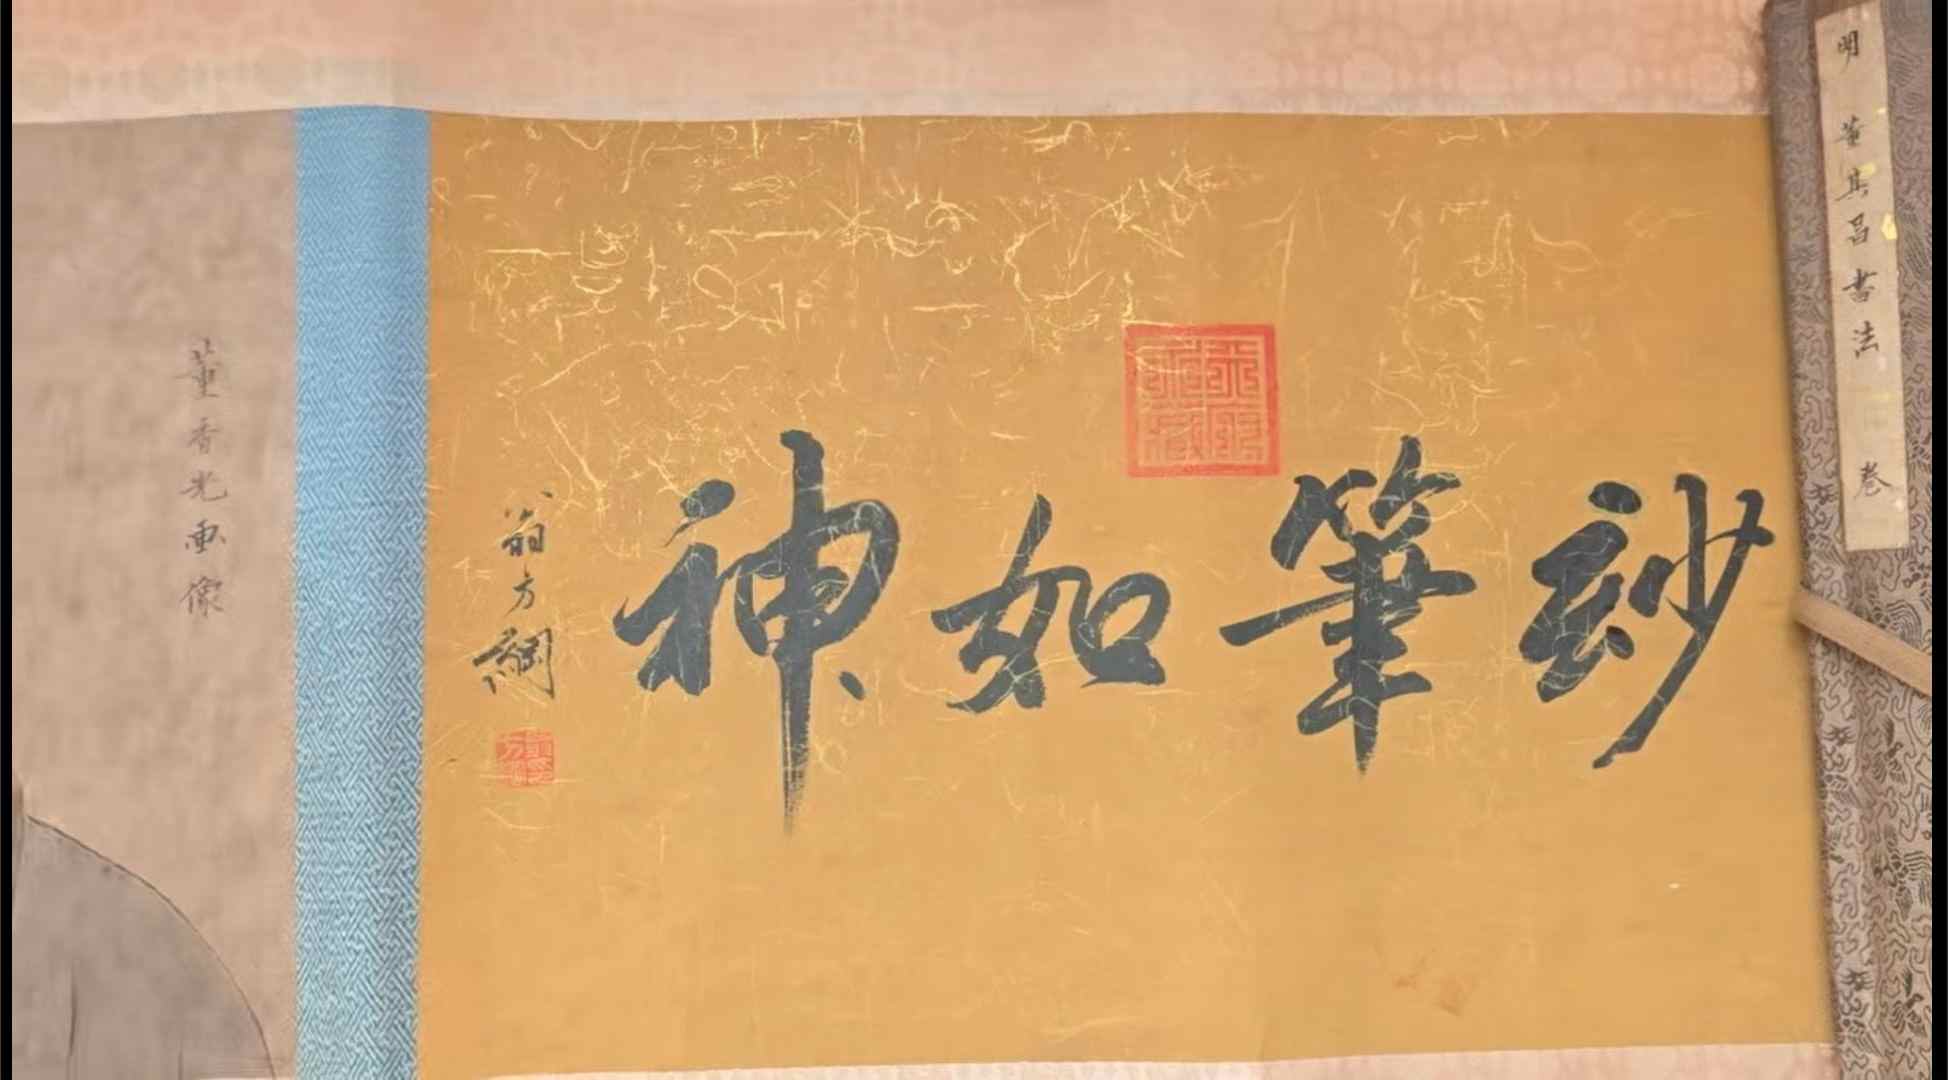 明 董其昌書法 卷
玅筆如神
翁方綱
董香光画像